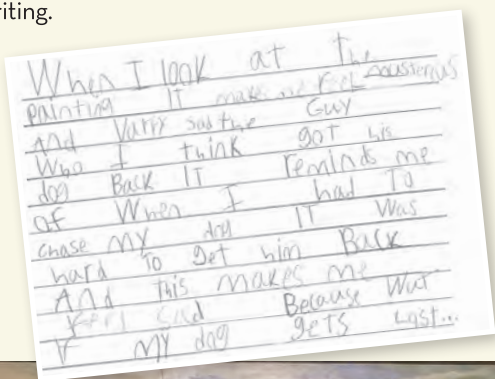 riting.
When I look at The
painting IT makes me Feel
And Varry sad the Guy
Who I think got his
dog Back IT reminds me
of When I had To
chase MY dog IT Was
hard To get him Back
And this makes me
Feel Sad Because Wat
MY dog gets Lost...